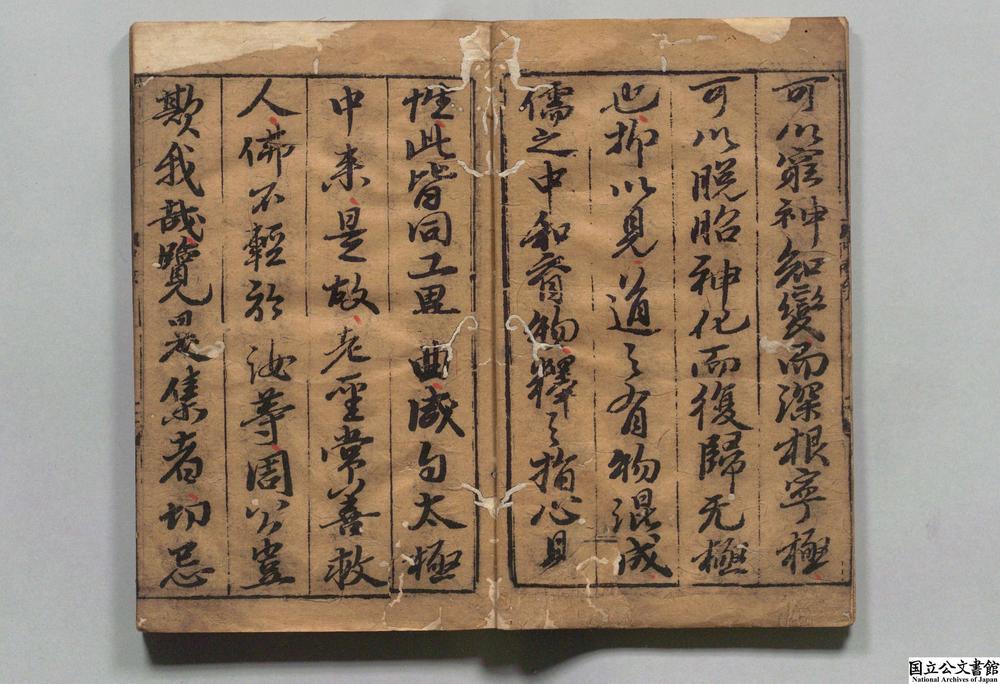 可以窮神知變而深根寧極
可以脫胎神化而復歸无極
也抑以見道之有物混成
儒之中和育物釋之指心見
性此皆同工異曲咸自太極
中来是故老聖常善救
人佛不輕於汝等周公豈
欺我哉覽是集者切忌
国立公文書館
National Archives of Japan